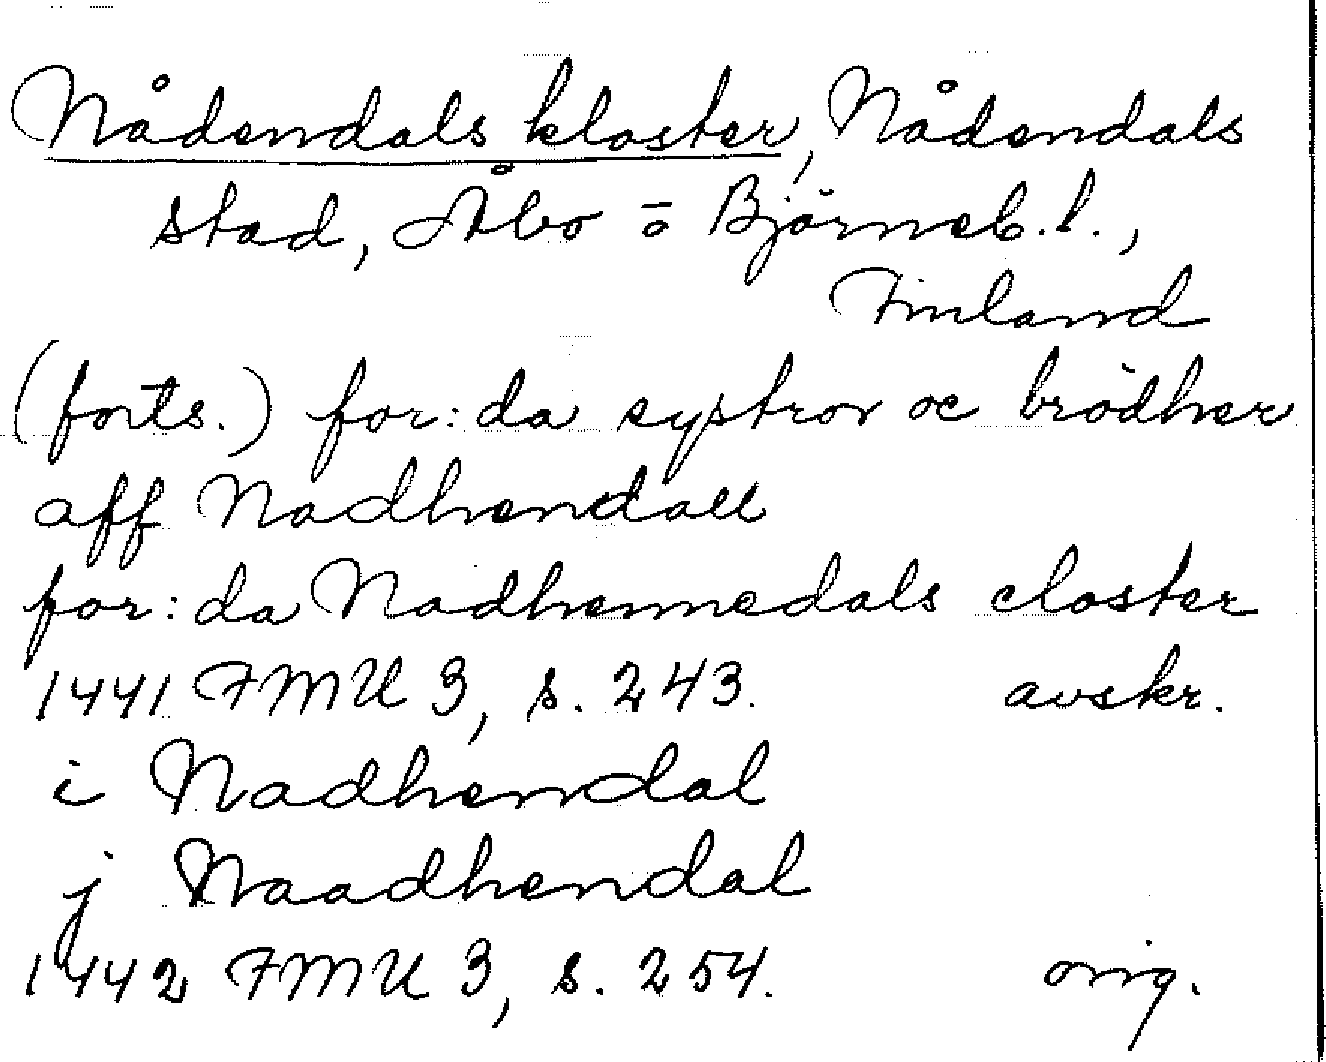 Nådendals kloster, Nådendals
stad, Åbo o Björneb.l.,
Finland
(forts.) for: da systror oc brödher
aff Nadhendall
for: da Nadhennedals closter
1441 FMU 3, s. 243. avskr.
i Nadhendal
j Naadhendal
1442 FMU 3, s. 254. orig.